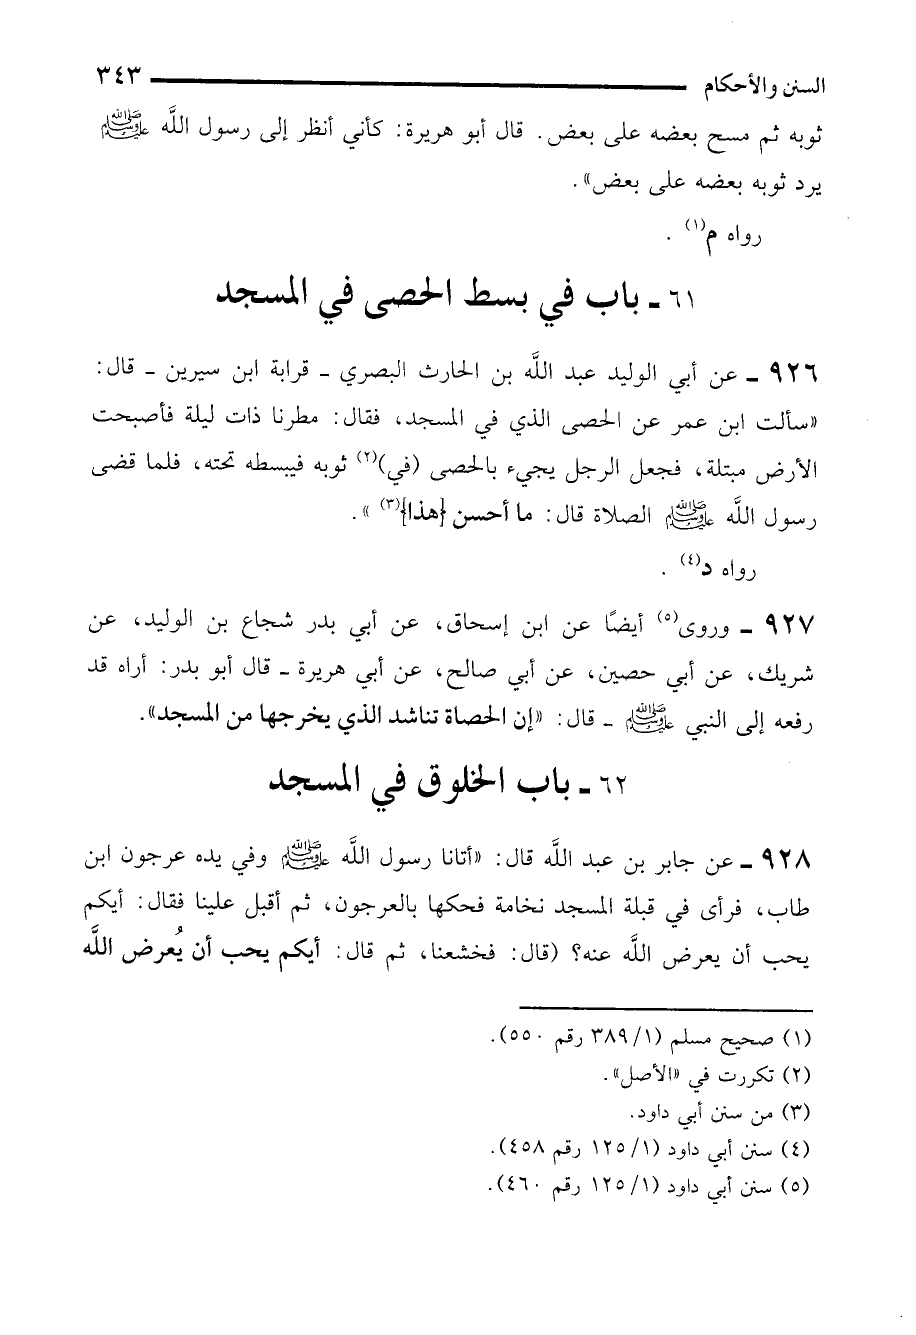 السنن والأحكام ٣٤٣
ثوبه ثم مسح بعضه على بعض. قال أبو هريرة: كأني أنظر إلى رسول اللَّه ﷺ
يرد ثوبه بعضه على بعض».
رواه م(١) .
٦١ ـ باب في بسط الحصى في المسجد
٩٢٦ ـ عن أبي الوليد عبد اللَّه بن الحارث البصري ـ قرابة ابن سيرين ـ قال:
«سألت ابن عمر عن الحصى الذي في المسجد، فقال: مطرنا ذات ليلة فأصبحت
الأرض مبتلة، فجعل الرجل يجيء بالحصى (في)(٢) ثوبه فيبسطه تحته، فلما قضى
رسول اللَّه ﷺ الصلاة قال: ما أحسن {هذا}(٣) ».
رواه د(٤) .
٩٢٧ ـ وروى(٥) أيضًا عن ابن إسحاق، عن أبي بدر شجاع بن الوليد، عن
شريك، عن أبي حصين، عن أبي صالح، عن أبي هريرة ـ قال أبو بدر: أراه قد
رفعه إلى النبي ﷺ ـ قال: «إن الحصاة تناشد الذي يخرجها من المسجد».
٦٢ ـ باب الخلوق في المسجد
٩٢٨ ـ عن جابر بن عبد اللَّه قال: «أتانا رسول اللَّه ﷺ وفي يده عرجون ابن
طاب، فرأى في قبلة المسجد نخامة فحكها بالعرجون، ثم أقبل علينا فقال: أيكم
يحب أن يعرض اللَّه عنه؟ (قال: فخشعنا، ثم قال: أيكم يحب أن يُعرض اللَّه
(١) صحيح مسلم (١/ ٣٨٩ رقم ٥٥٠).
(٢) تكررت في «الأصل».
(٣) من سنن أبي داود.
(٤) سنن أبي داود (١/ ١٢٥ رقم ٤٥٨).
(٥) سنن أبي داود (١/ ١٢٥ رقم ٤٦٠).